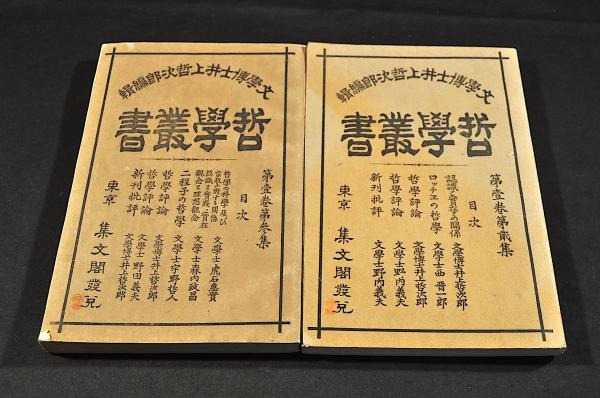 文學博士井上哲次郎編輯
哲學叢書
第壹卷第貳集
目次
認識と實在の關係 文學博士井上哲次郎
ロッチエの哲學 文學士西晋一郎
哲學評論 文學博士井上哲次郎
哲學評論 文學士野田義夫
新刊批評 文學士野田義夫
東京 集文閣發兌
文學博士井上哲次郎編輯
哲學叢書
第壹卷第參集
目次
哲學の科學及び
宗教に對する關係 文學士虎石惠實
認識と實在と實在
觀念と理想觀念 文學士森内政昌
二程子の哲學 文學士宇野哲人
哲學評論 文學博士井上哲次郎
哲學評論 文學士野田義夫
新刊批評 文學博士井上哲次郎
東京 集文閣發兌